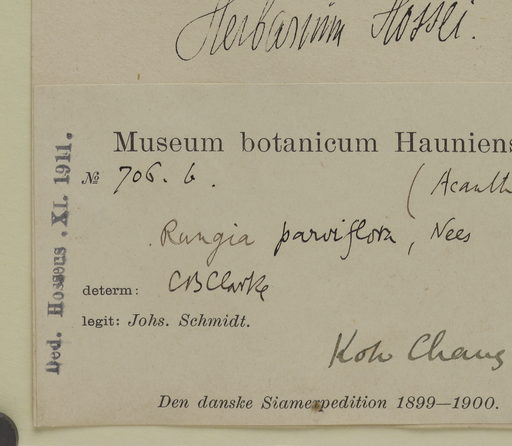 Herbarium Hossei.
Museum botanicum Hauniens
№ 706. b. (Acanth
Rungia parviflora, Nees
determ: CBClarke
legit: Johs. Schmidt.
Koh Chang
Den danske Siamexpedition 1899—1900.
Ded. Hosseus. XI. 1911.